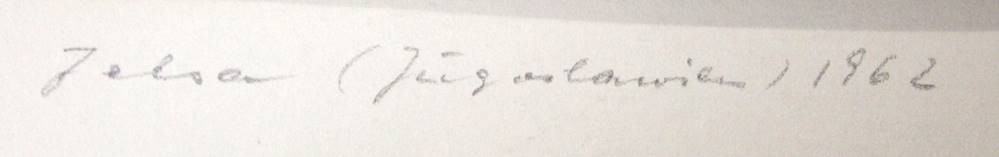 Jelsa (Jugoslawien) 1962